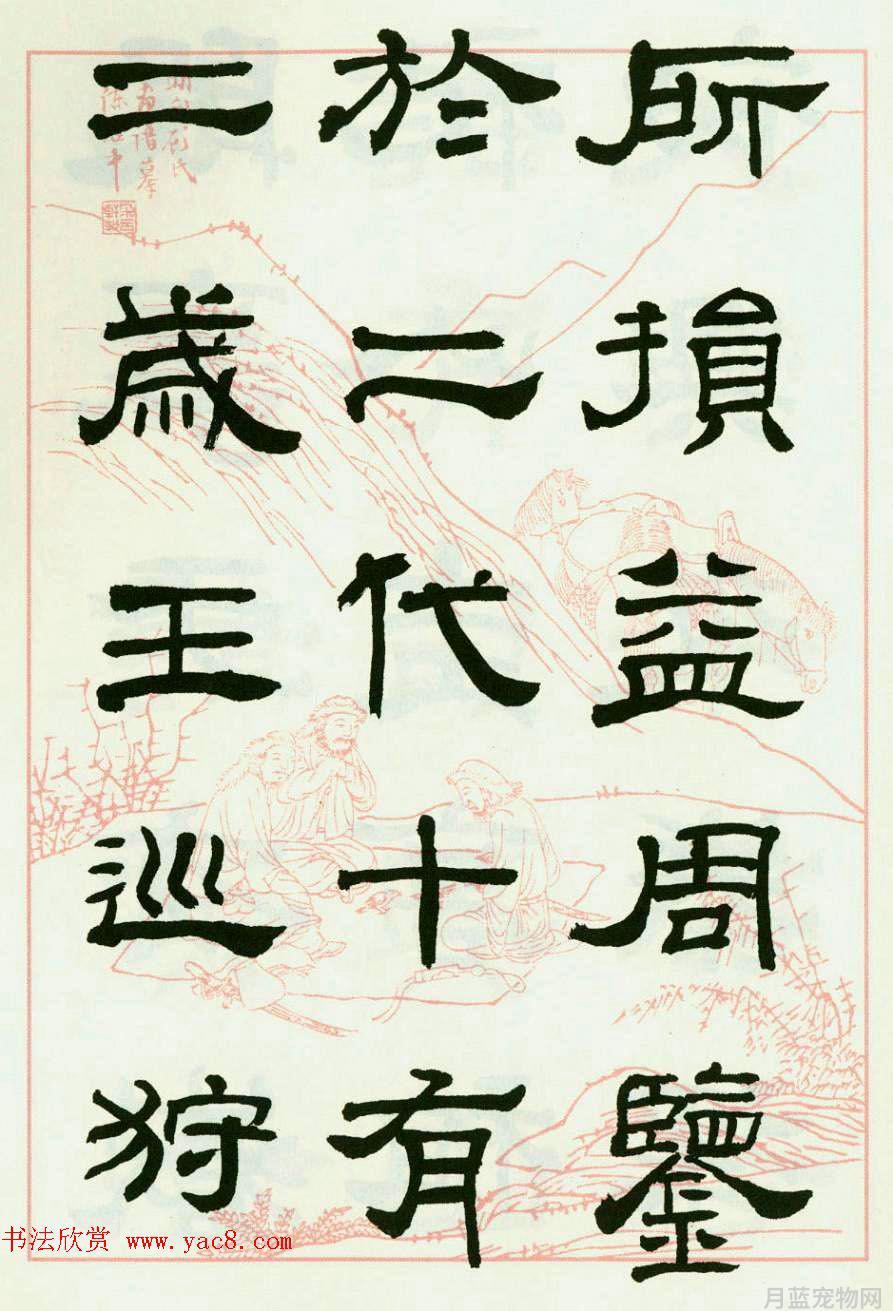 所損益周鑒
於二代十有
二歲王巡狩
书法欣赏 www.yac8.com
月蓝宠物网